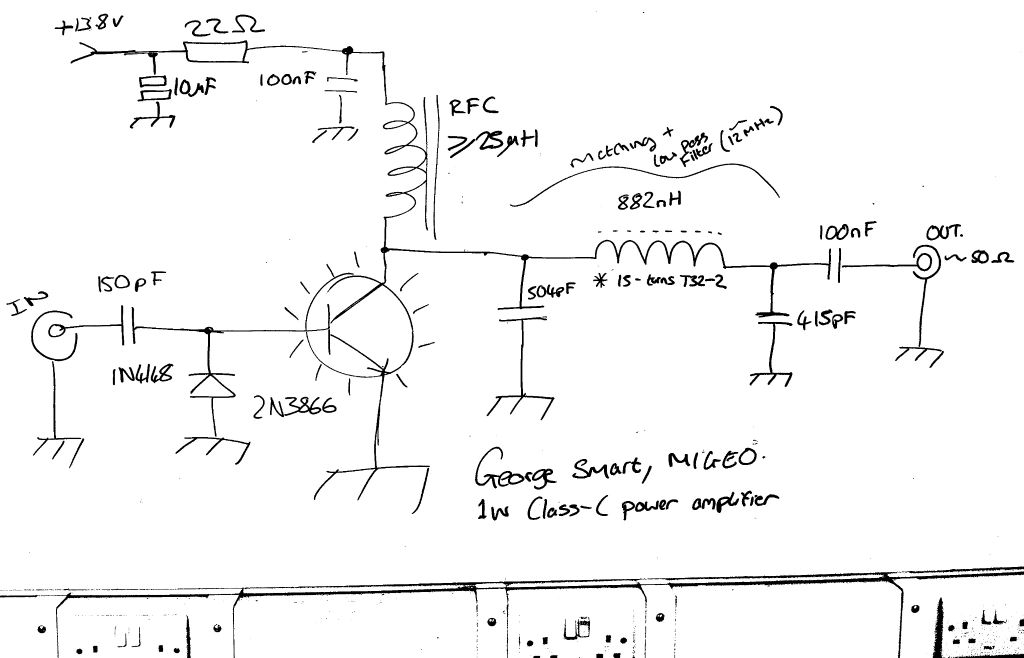 +13.8V
22Ω
10µF
100nF
RFC
≥25µH
Matching +
Low Pass
Filter (~12MHz)
882nH
100nF
OUT.
~50Ω
IN
150pF
504pF
* 15-turns T32-2
415pF
1N4148
2N3866
George Smart, M1GEO.
1W Class-C power amplifier